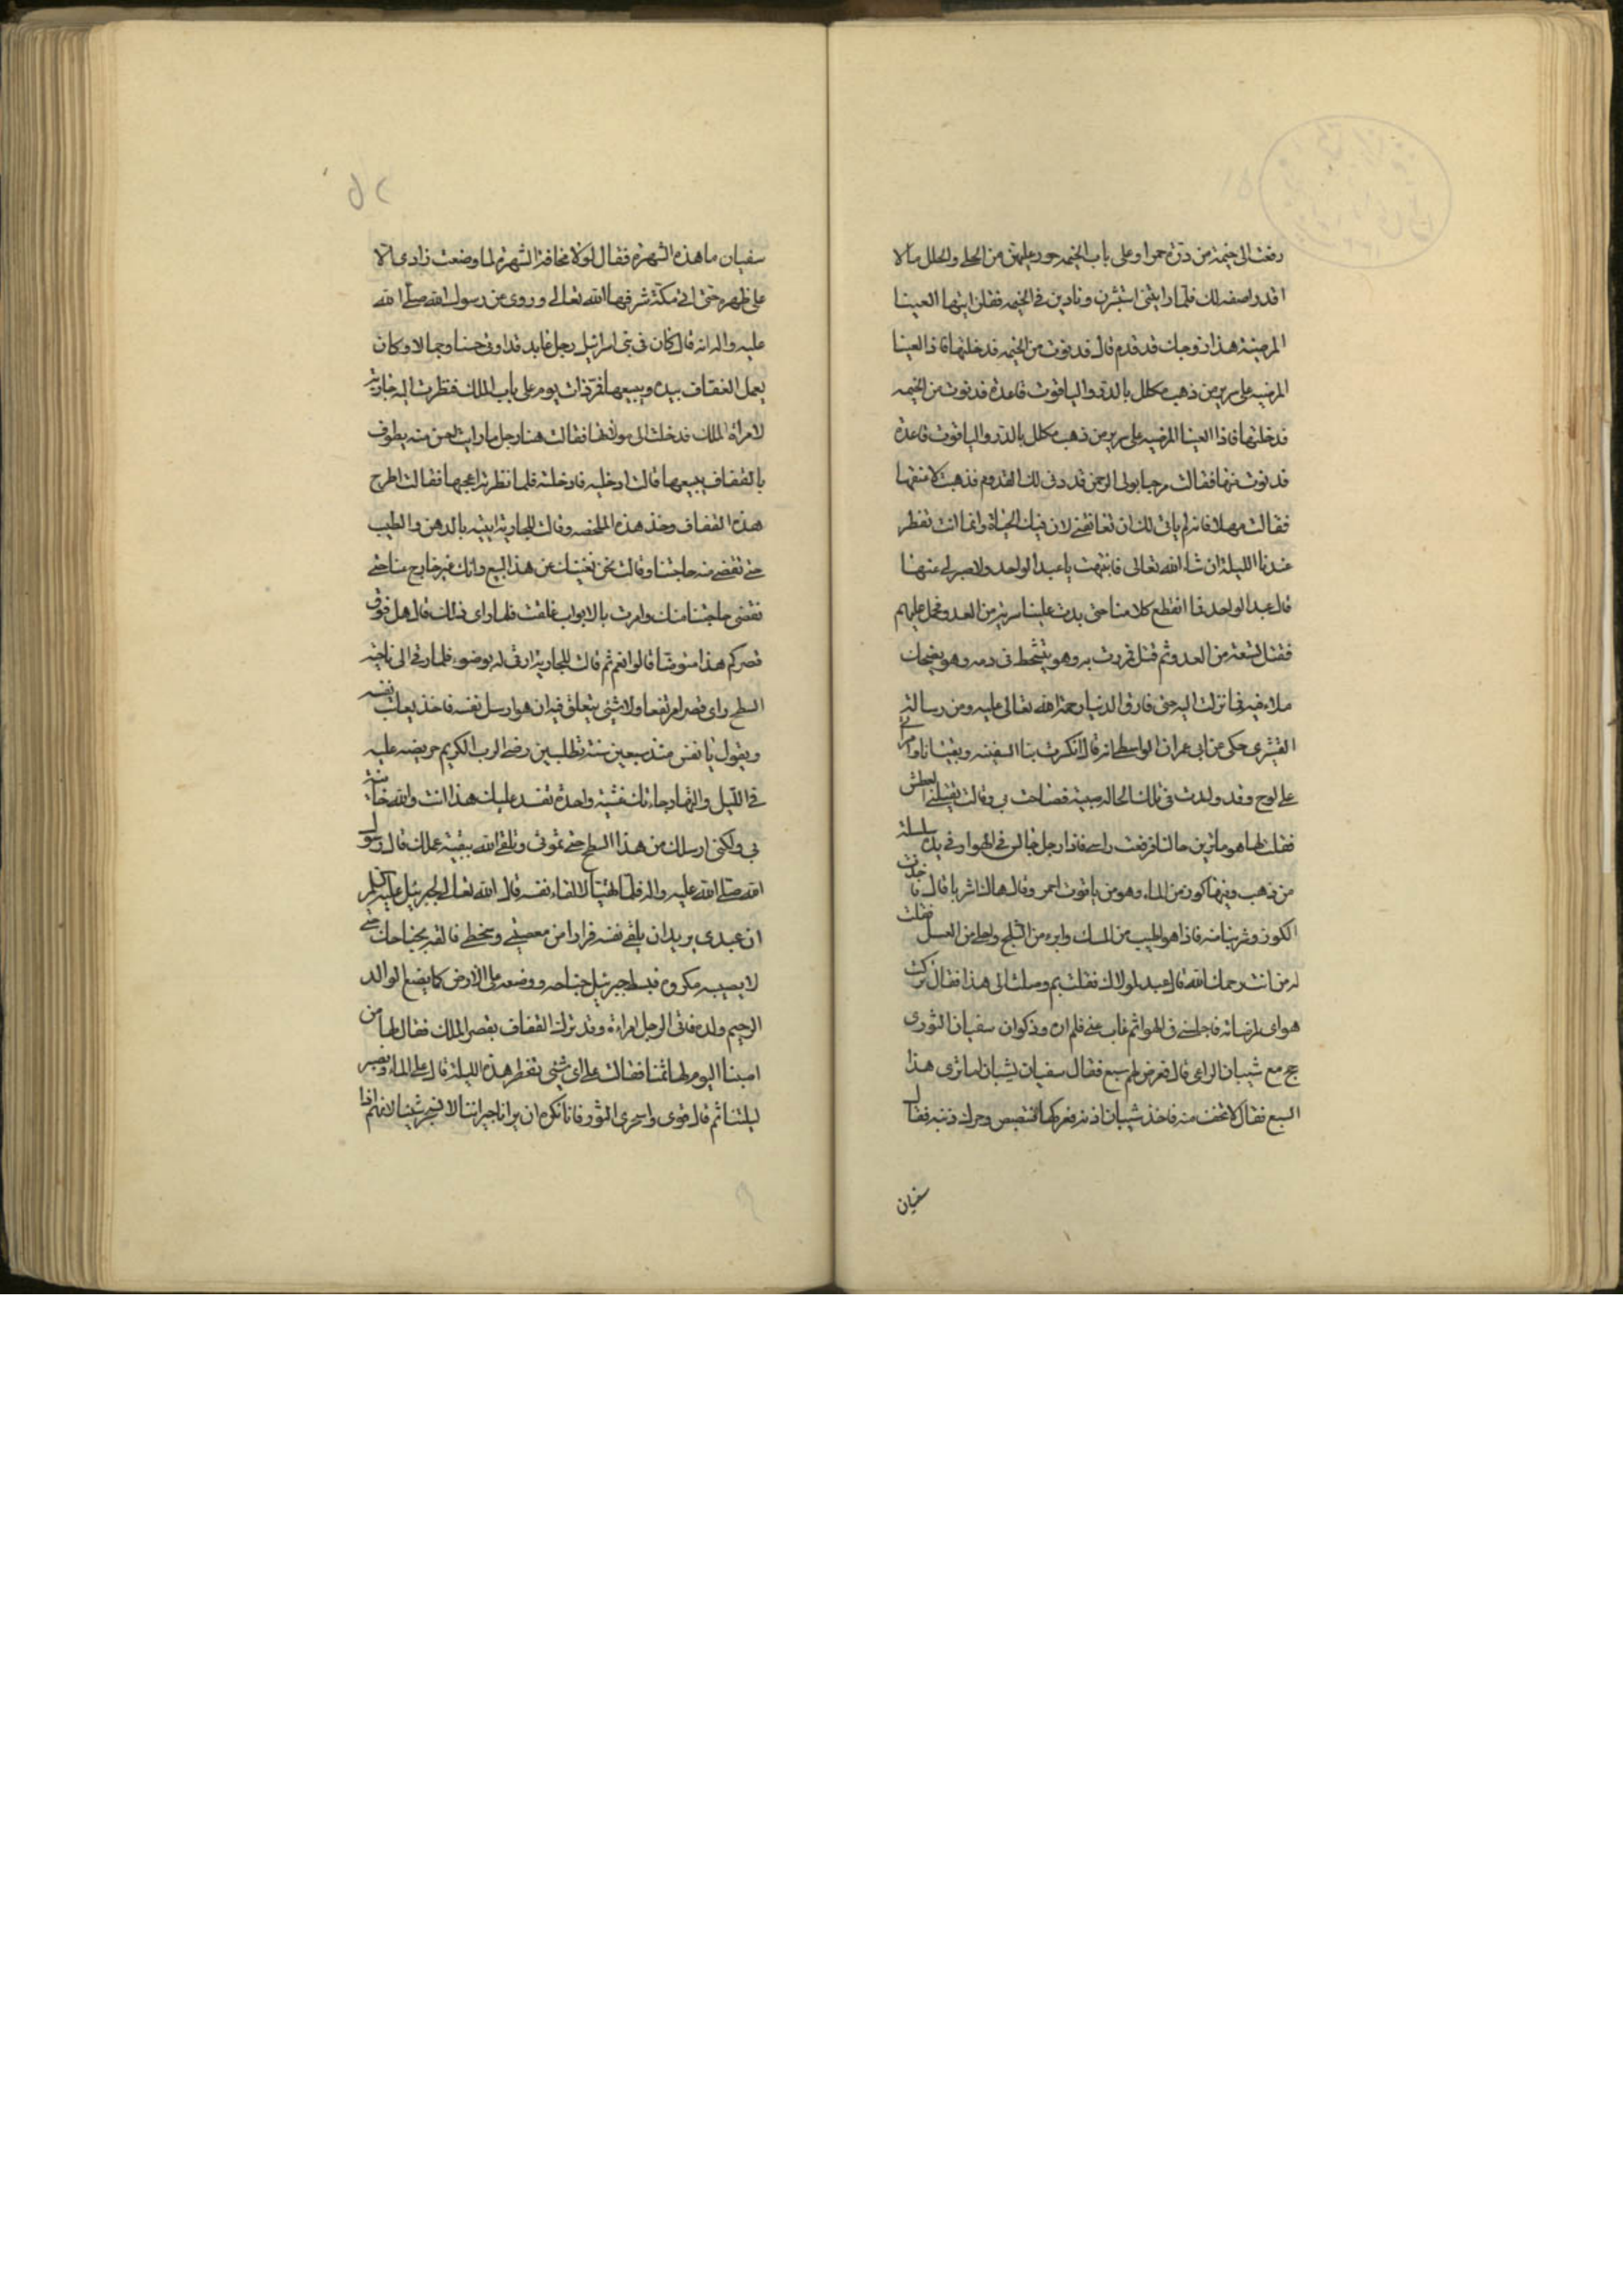 رفعت الى خيمة من درة حمرا وعلى باب الخيمة حور عليهن من الحلى والحلل ما لا
اقدر اصفه لك فلما رايننى استبشرن ونادين فى الخيمه فقلن ايتها العينا
المرضية هذا زوجك قد قدم قال قد نوت من الخيمه فدخلتها فاذا العينا
المرضيه على سرير من ذهب مكلل بالدر والياقوت قاعدة قد نوت من الخيمه
فدخلتها فاذا العينا المرضيه على سرير من ذهب مكلل بالدر والياقوت قاعدة
قد نوت منها فقالت مرحبا بولى الرحمن قد دنى لك القدوم فذهبت لاعتنقها
فقالت مهلا فانه لم يانى لك ان تعانقنى لان فيك الحياة وانما انت تفطر
عندنا الليلة ان شاء الله تعالى فانتبهت يا عبد الواحد ولا صبر لى عنها
قال عبد الواحد فما انقطع كلامنا حتى بدت علينا سرية من العدو فحمل عليهم
فقتل تسعة من العدو ثم قتل فمررت به وهو يتشحط فى دمه وهو يضحك
ملاء فيه فما نزلت اليه حتى فارق الدنيا رحمة الله تعالى عليه ومن رسالة
القشيرى حكى عن ابى عمران الواسطى انه قال انكسرت بنا السفينه وبقيت انا وامرأتى
على لوح وقد ولدت فى تلك الحاله صبية فصاحت بى وقالت يقتلنى العطش
فقلت لها هو ما ترين حالنا فرفعت راسى فاذا رجل جالس فى الهوا وفى يده سلسلة
من ذهب وفيها كوز من الماء وهو من ياقوت احمر وقال هاك اشربا قال فاخذت
الكوز وشربنا منه فاذا هو اطيب من المسك وابرد من الثلج واحلى من العسل فقلت
له من انت رحمك الله قال عبد لمولاك فقلت بم وصلت الى هذا فقال تركت
هواى لمرضاته فاجلسنى فى الهوا ثم غاب عنى فلم اره وذكر ان سفيان الثورى
حج مع شيبان الراعى قال فعرض لهم سبع فقال سفيان لشيبان اما ترى هذا
السبع فقال لا تخف منه فاخذ شيبان اذنه فعركها فتبصبص وحرك ذنبه فقال
سفيان
سفيان ما هذه الشهرة فقال لولا مخافة الشهرة لما وضعت زادى الا
على ظهره حتى اتى مكة شرفها الله تعالى وروى عن رسول الله صلى الله
عليه واله انه قال كان فى بنى اسرائيل رجل عابد قد اوتى حسنا وجمالا وكان
يعمل القفاف بيده ويبيعها فمر ذات يوم على باب الملك فنظرت اليه جارية
لامراة الملك فدخلت الى مولاتها فقالت هنا رجل ما رايت احسن منه يطوف
بالقفاف يبيعها قالت ادخليه فادخلته فلما نظرته اعجبها فقالت اطرح
هذه القفاف وخذ هذه الملحفه وقالت للجارية ايتيه بالدهن والطيب
حتى نقضى منه حاجتنا وقالت نحن نغنيك عن هذا البيع وانك غير خارج منا حتى
نقضى حاجتنا منك وامرت بالابواب غلقت فلما راى ذلك قال هل فوق
قصركم هذا متوضا قالوا نعم ثم قالت للجارية ارقى له بوضوء فلما رقى الى ناحية
السطح راى قصرا مرتفعا ولا شئى يتعلق فيه ان هو ارسل نفسه فاخذ يعاتب نفسه
ويقول يا نفس منذ سبعين سنة تطلبين رضى الرب الكريم حريصه عليه
فى الليل والنهار جاءتك عشية واحدة تفسد عليك هذا انت والله خائنة
بى ولكنى ارسلك من هذا السطح حتى تموتى وتلقى الله ببقية عملك قال رسول
الله صلى الله عليه واله فلما تهيأ لالقاء نفسه قال الله تعالى لجبرئيل عليه السلم
ان عبدى يريد ان يلقى نفسه فرارا من معصيتى وسخطى فالقه بجناحك حتى
لا يصيبه مكروه فبسط جبرئيل جناحه ووضعه على الارض كما يضع الوالد
الرحيم ولده فاتى الرجل امراءة وقد ترك القفاف بقصر الملك فقال لها من
اصبنا اليوم لها ثمنا فقالت على اى شئى تفطر هذه الليلة قال على الماء ونصبر
ليلتنا ثم قال قومى واسجرى التنور فانا نكره ان يرانا جيراننا لا نسجر شيئا لانهم اذا